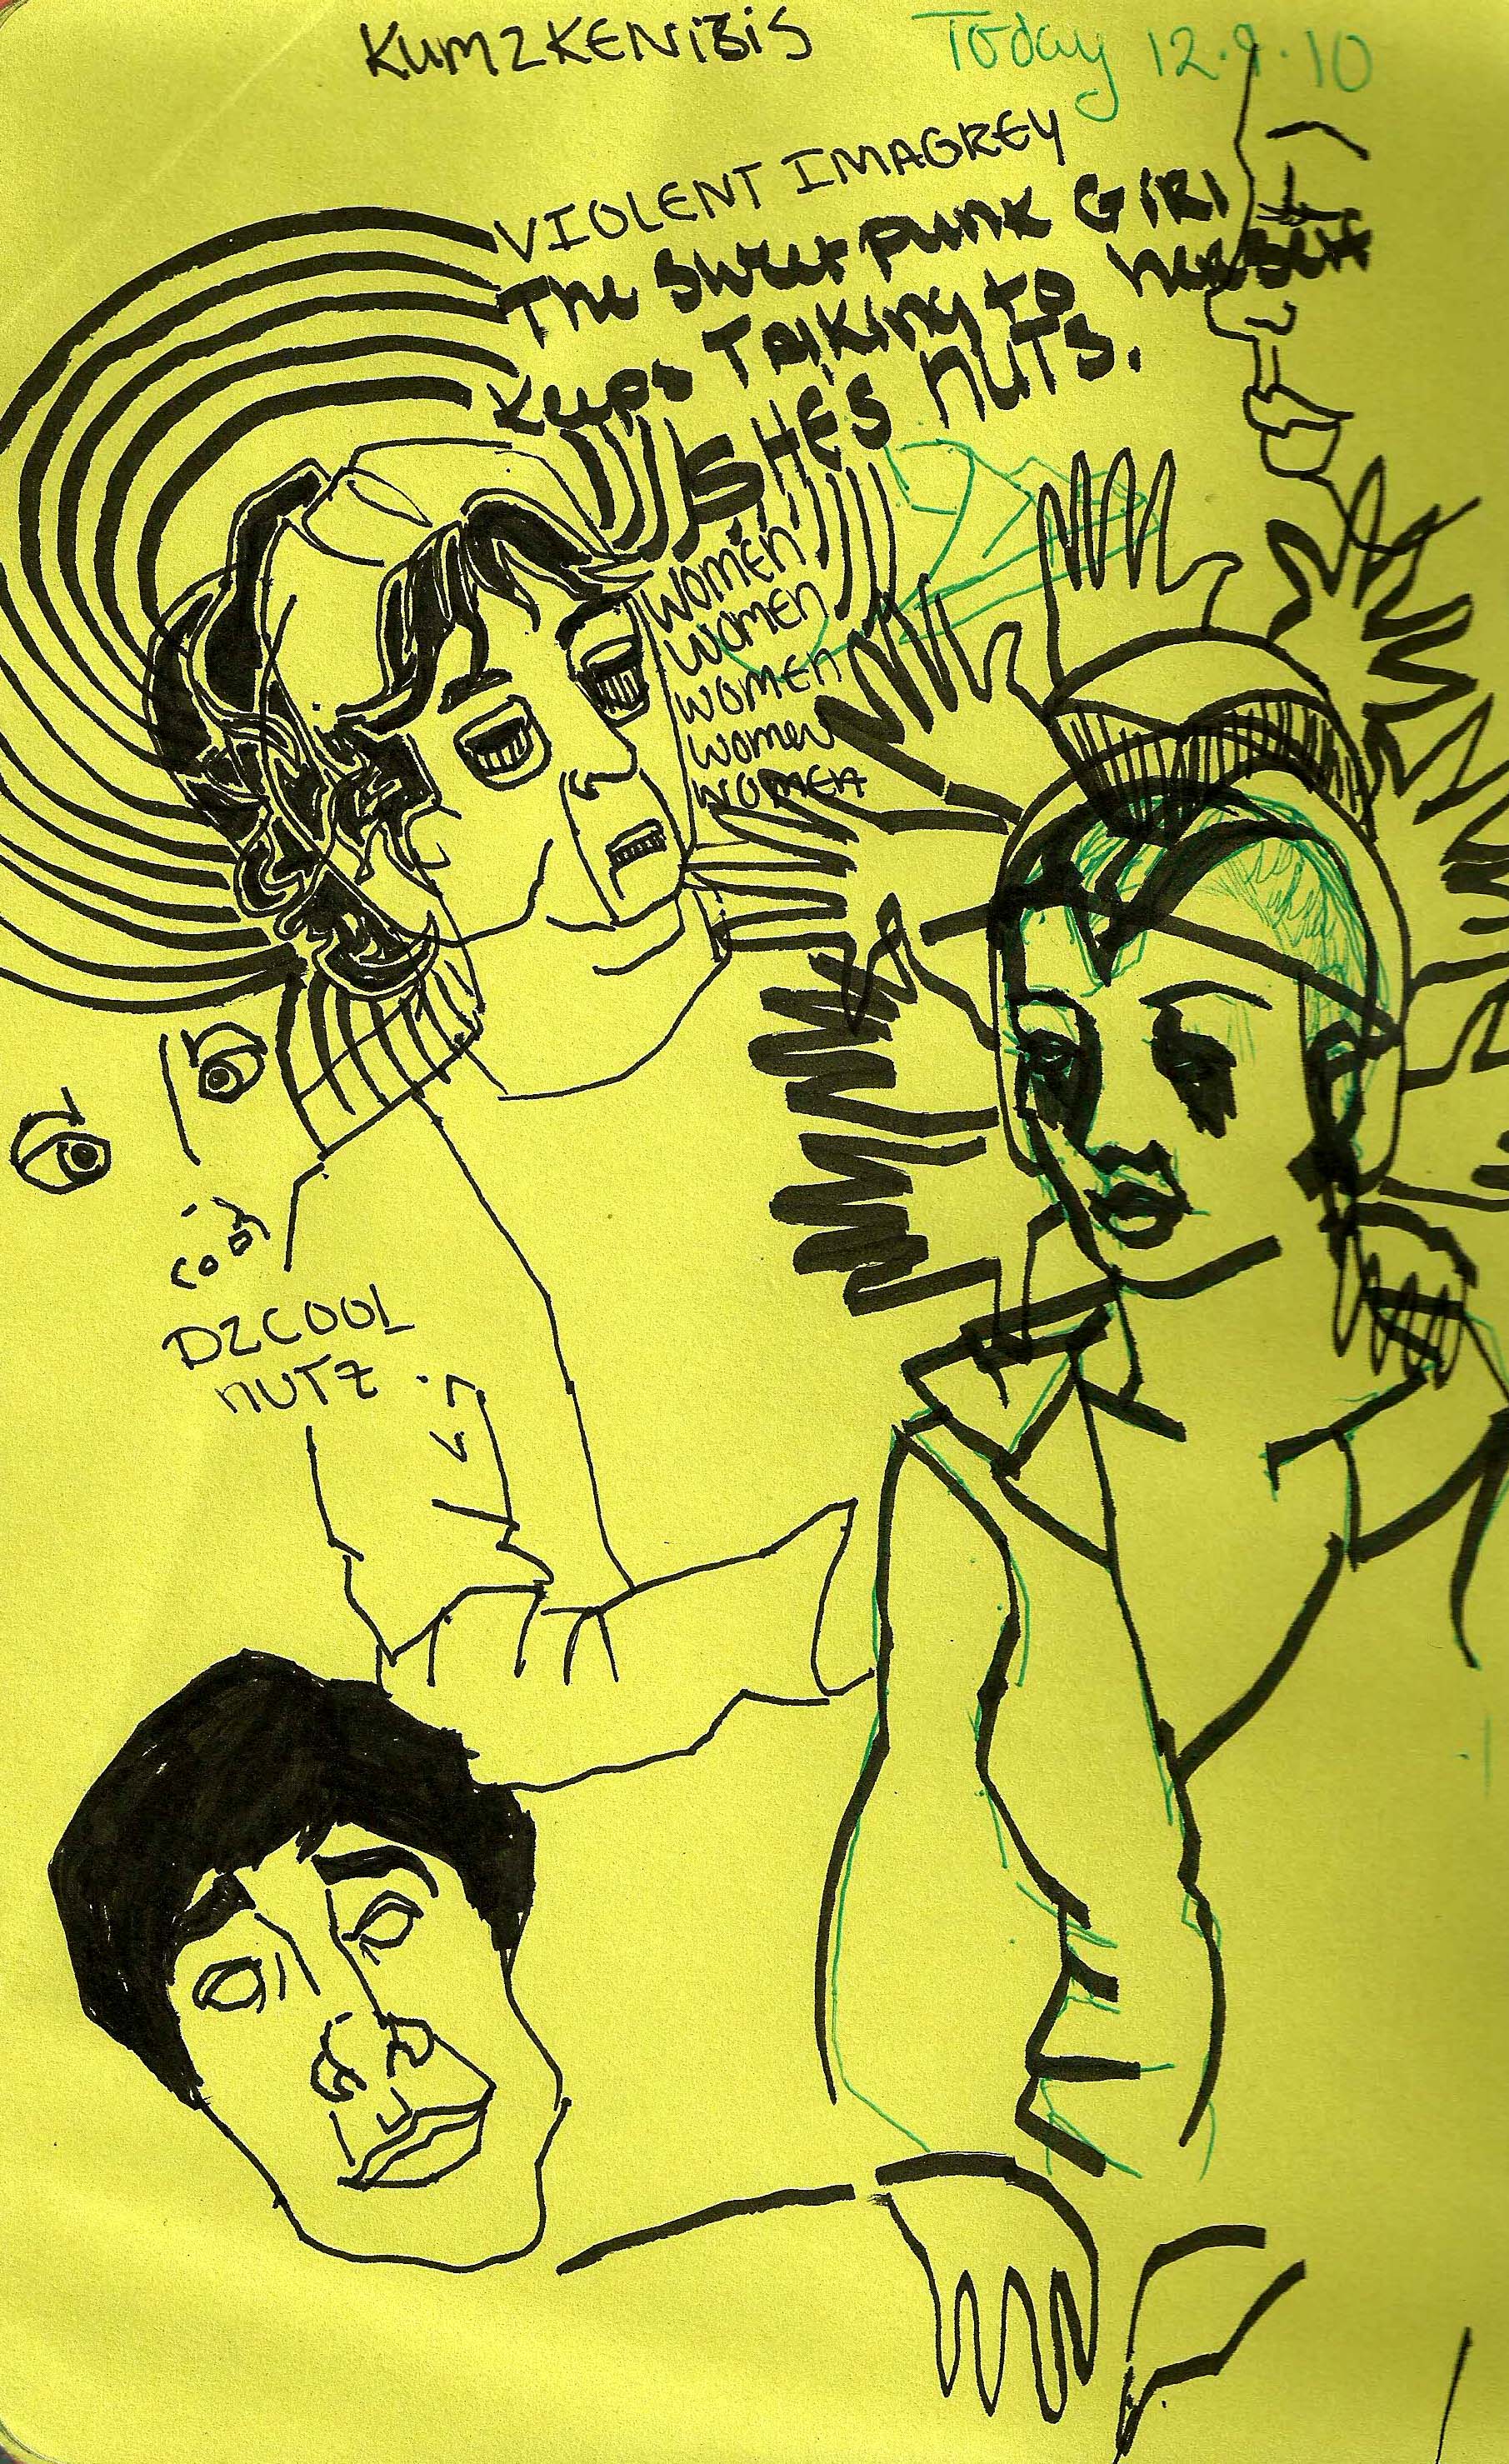 KUMZKENIBIS
Today 12.9.10
VIOLENT IMAGREY
The Sweet punk GIRl
Keeps TAlKing to herself
SHES NUTS.
WOMEN
WOMEN
WOMEN
WOMEN
WOMEN
DZCOOL
NUTZ